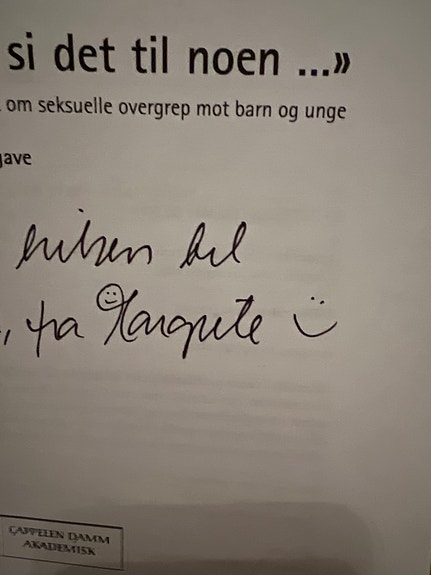 si det til noen ...»
om seksuelle overgrep mot barn og unge
gave
hilsen til
, fra Margrete
CAPPELEN DAMM
AKADEMISK